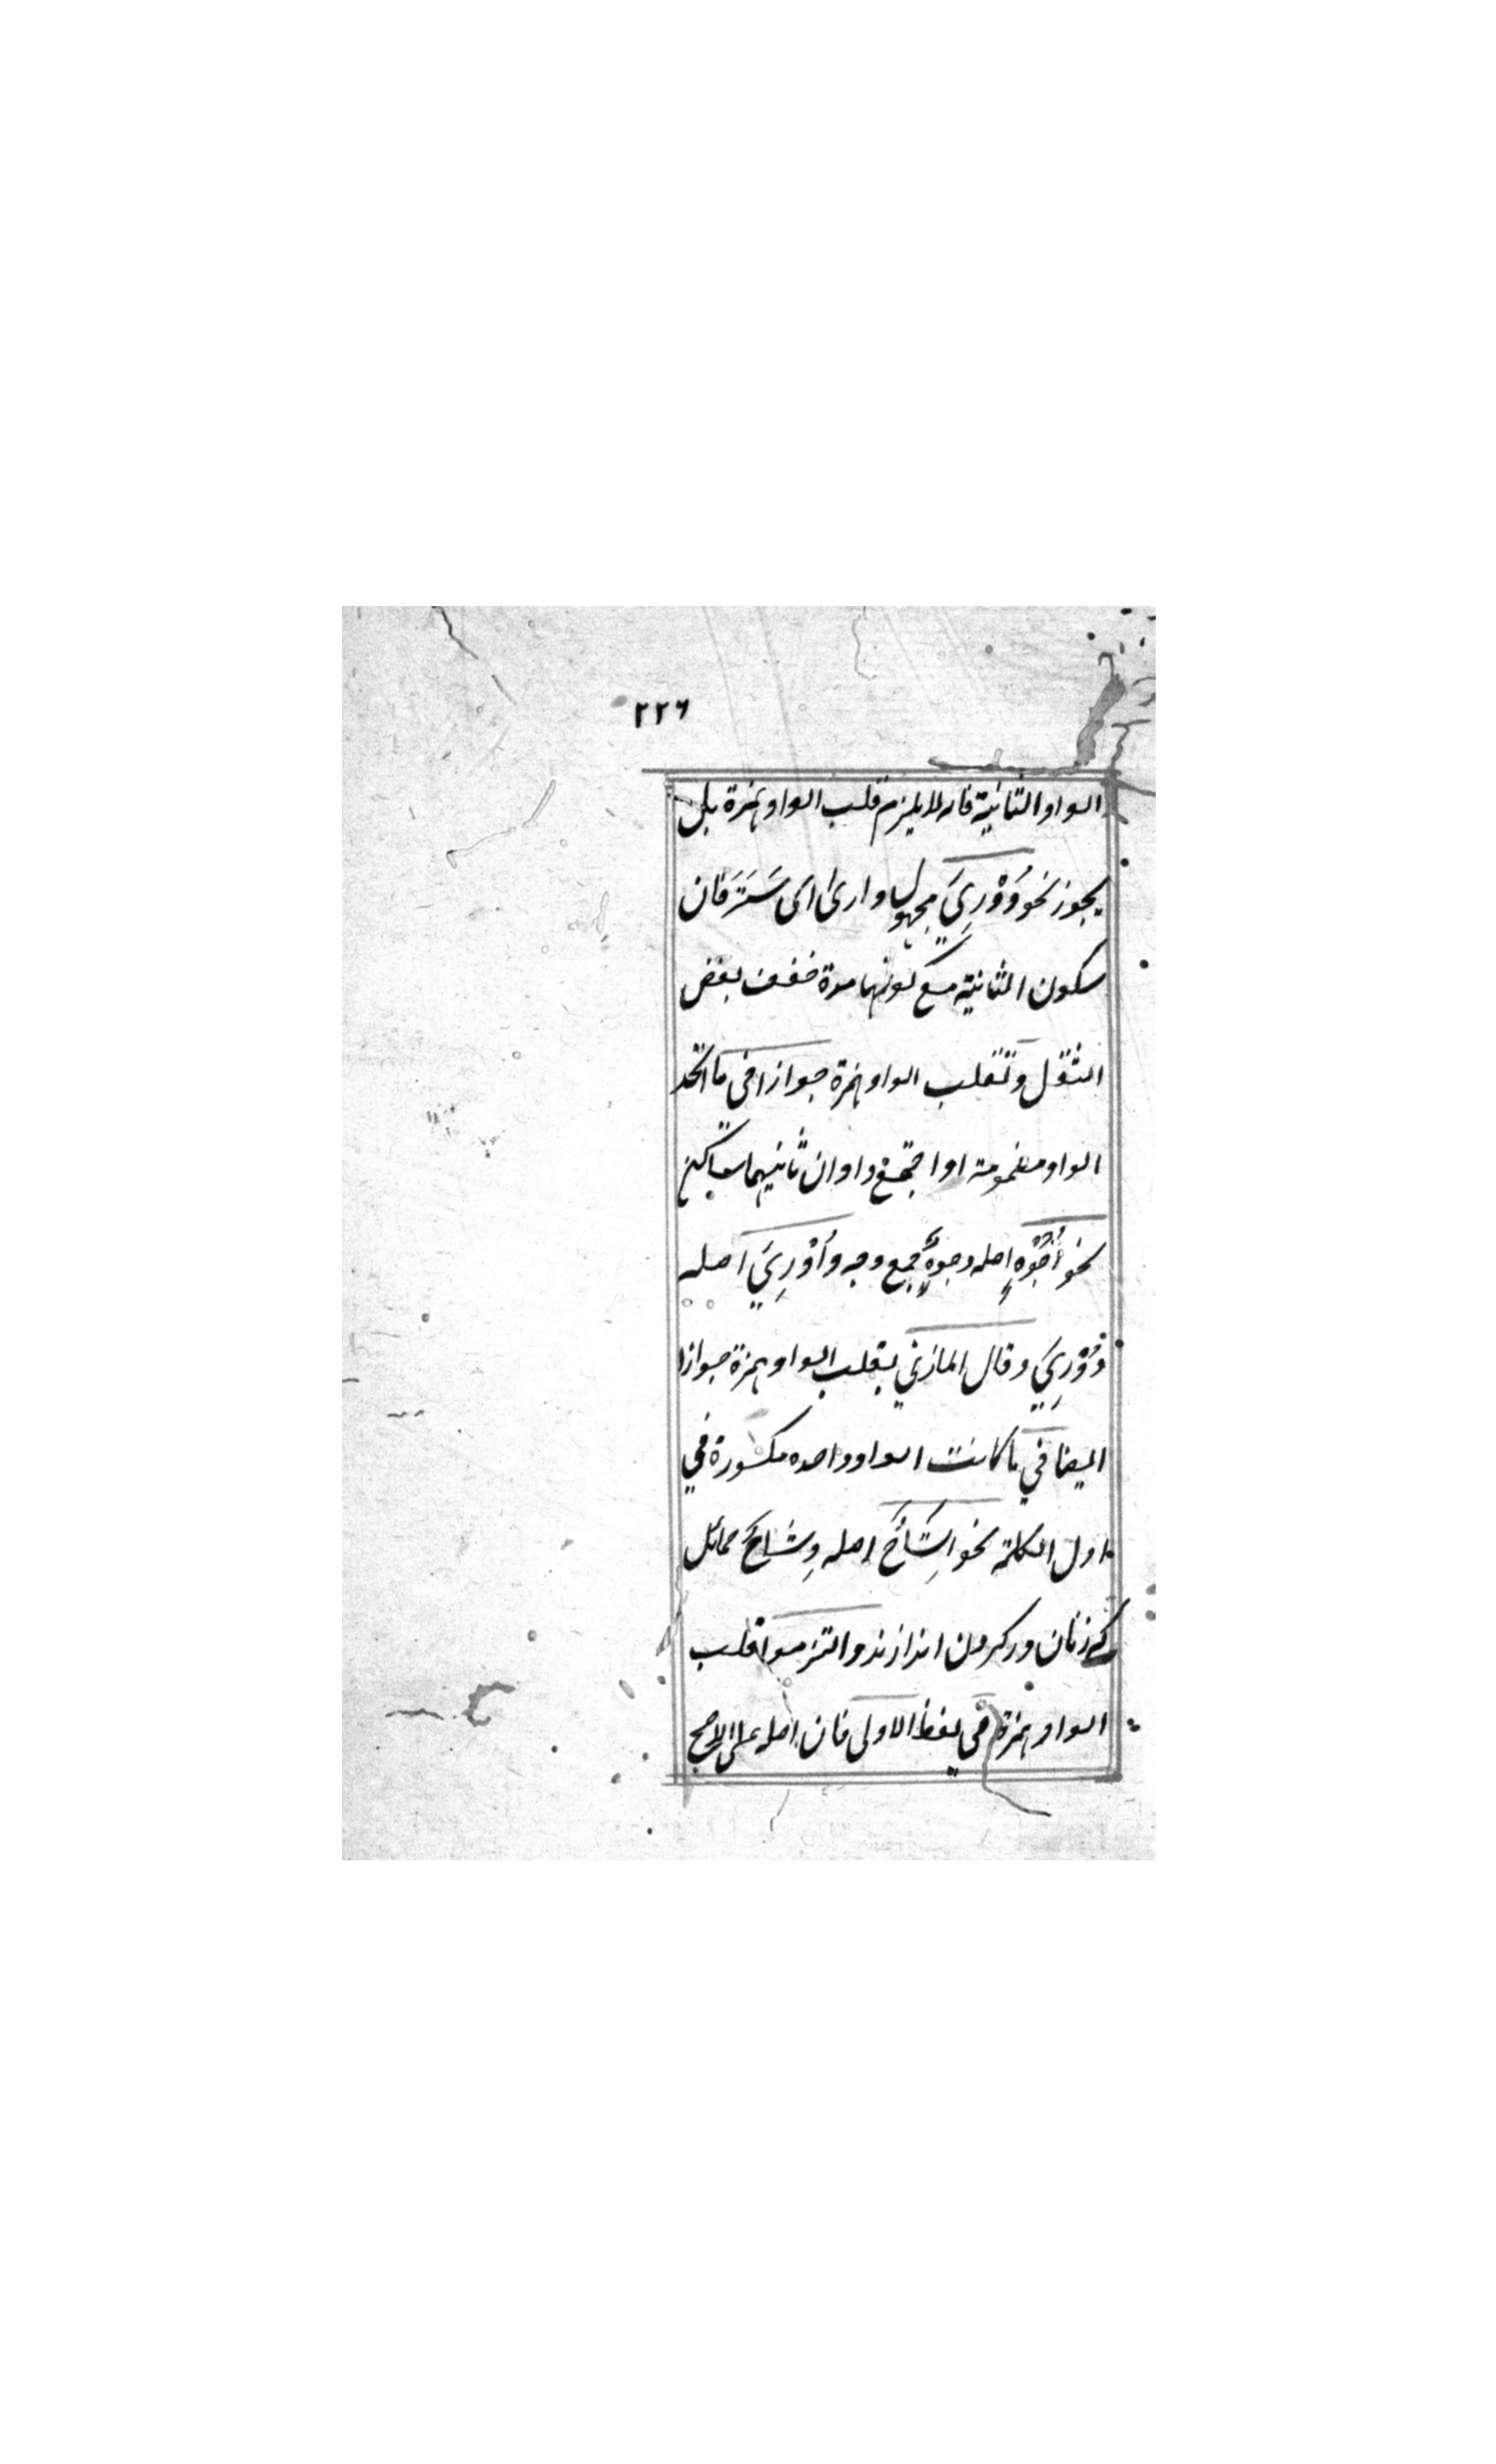 ٢٢٦
الواو الثانية فانه لا يلزم قلب الواو همزة بل
يجوز نحو وُوْرِيَ مجهول وارى اى سَتَرَ فان
سكون الثانية مع كونها مدة خفف بعض
الثقل وتقلب الواو همزة جوازا فى ما اتحد
الواو مضمومة او اجتمع واوان ثانيهما ساكن
نحو اُجُوْهٍ اصله وجوهٌ جمع وجه و اُوْرِيَ اصله
وُوْرِيَ وقال المازني بقلب الواو همزة جوازا
ايضا في ما كانت الواو واحده مكسورة في
اول الكلمة نحو اِشَاحٌ اصله وِشَاحٌ حمائل
كه زنان در كردن اندازند والتزموا قلب
الواو همزة فى لفظ الاولى فان اصله على الاصح